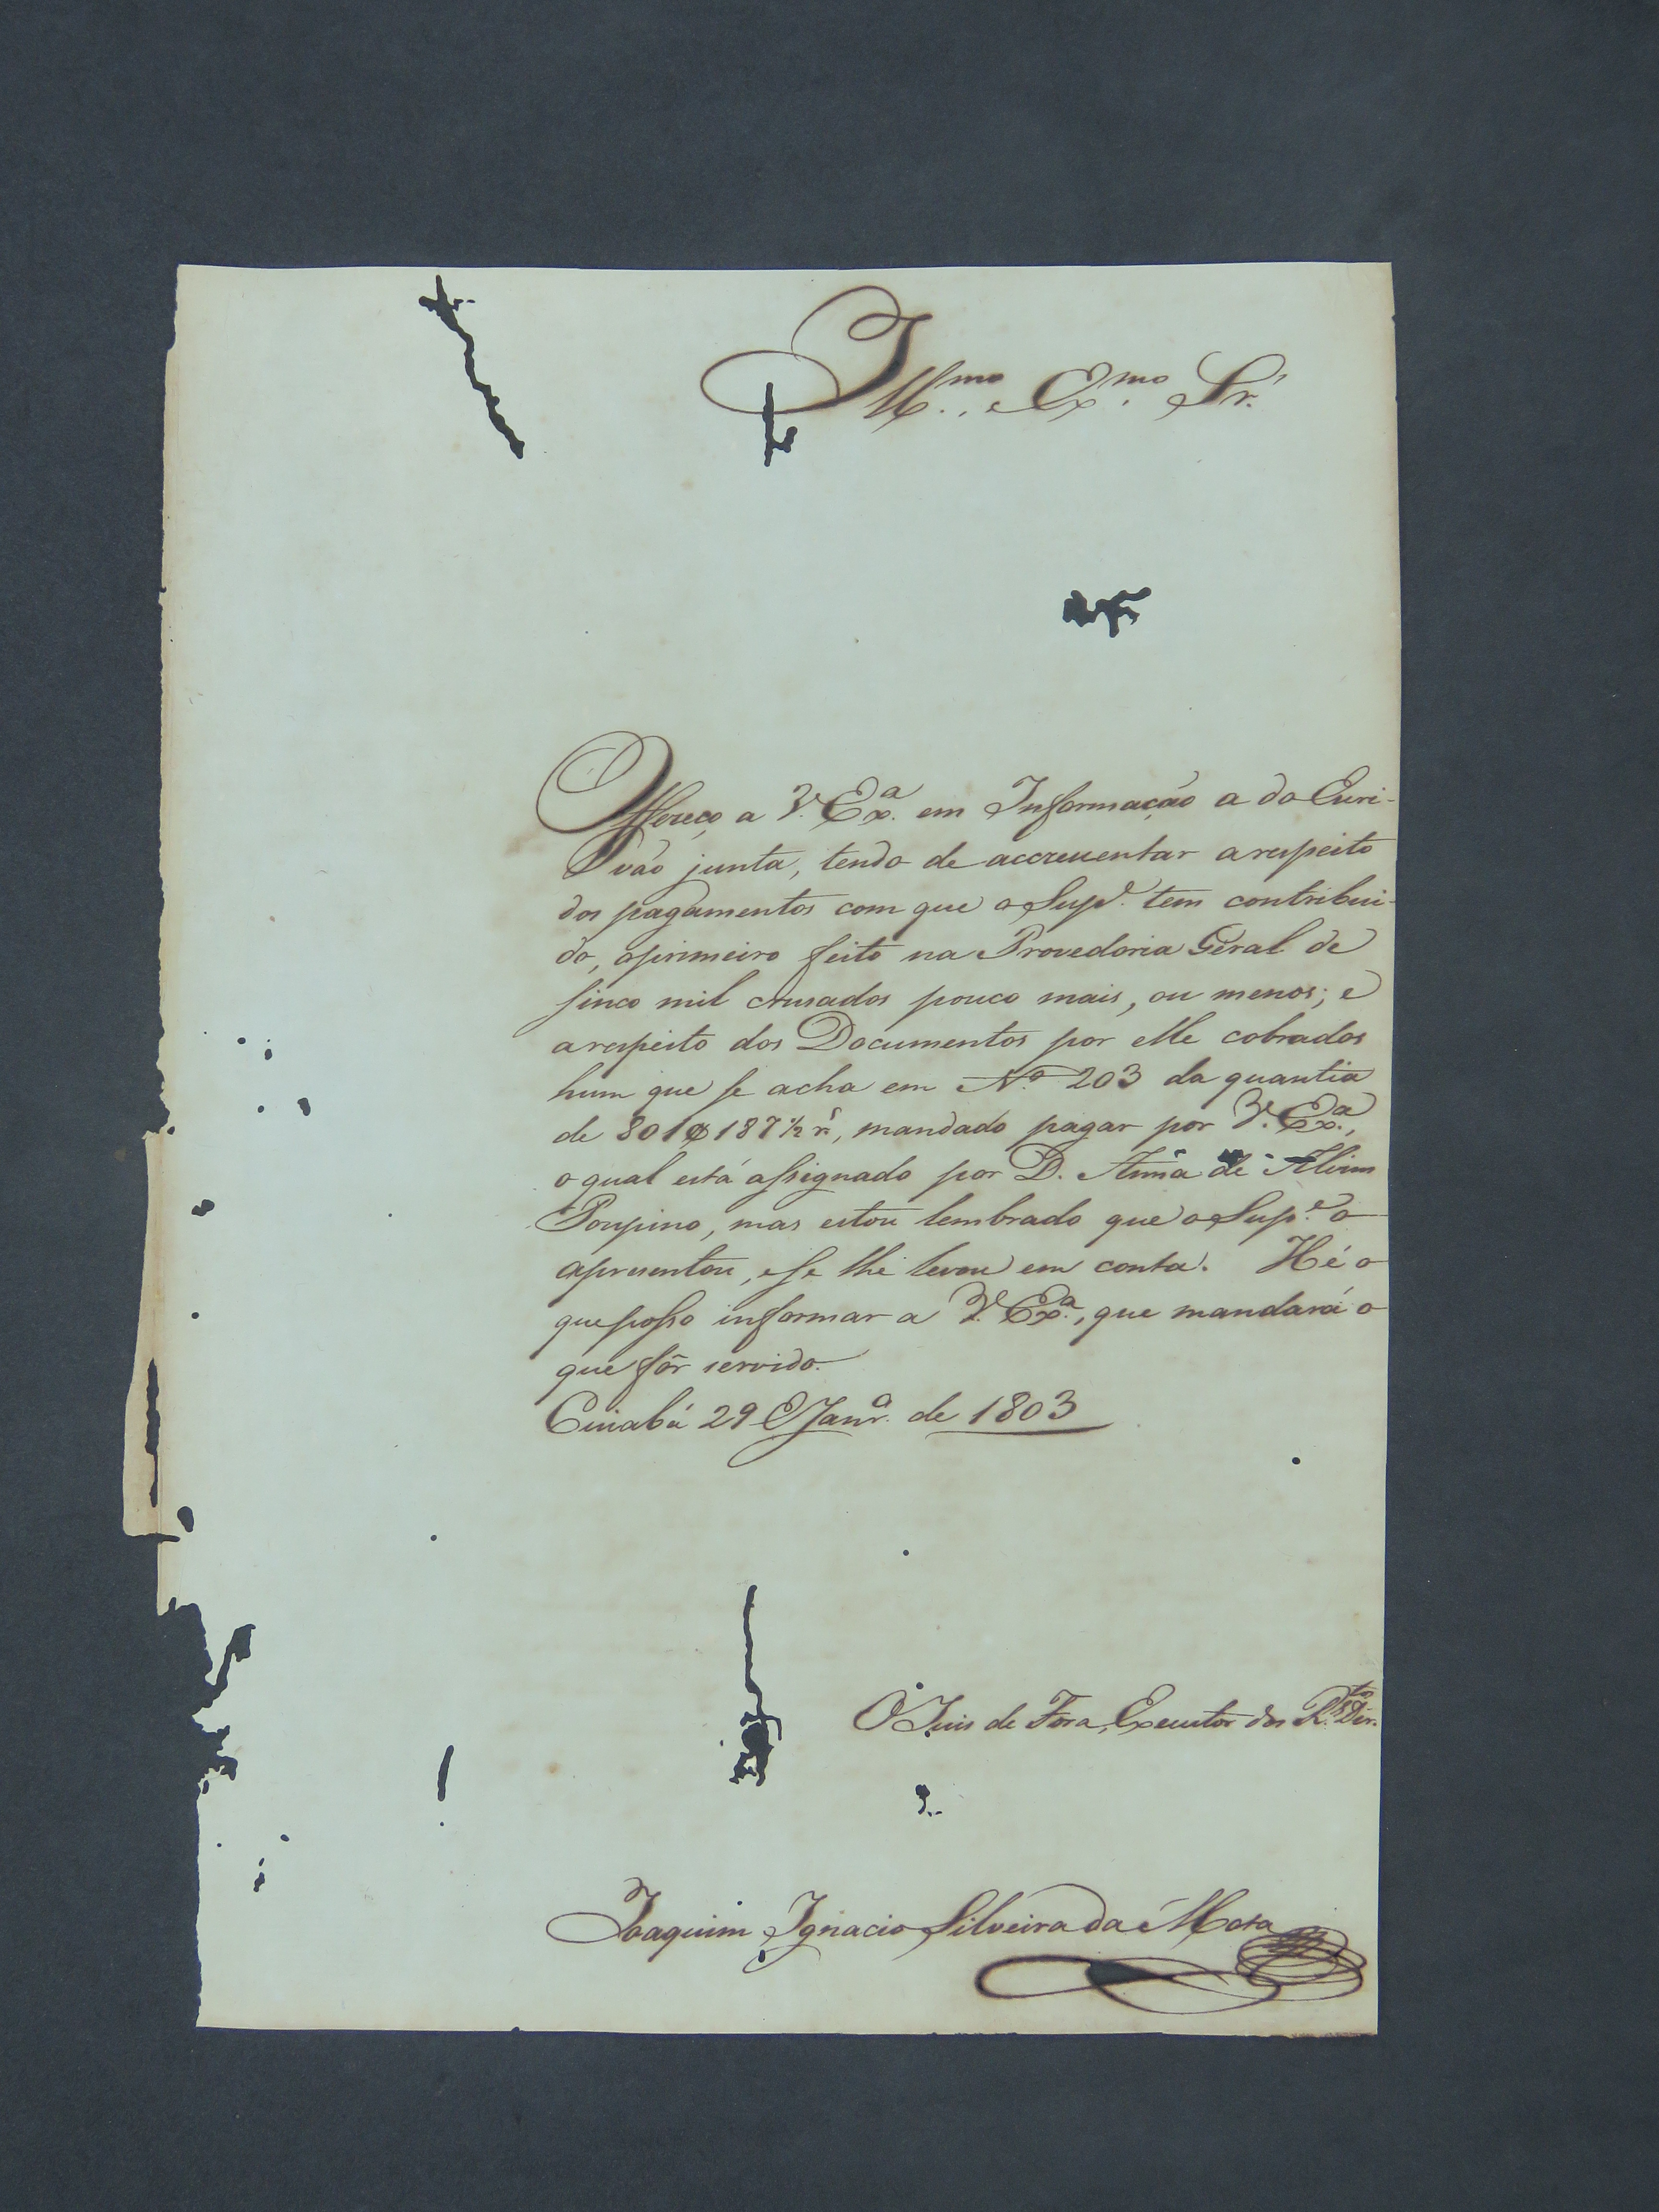 Illmo. e Exmo. Sr.
Offereço a V. Exa. em Informação a do Escri-
vão junta, tendo de accrescentar a respeito
dos pagamentos com que o Supe. tem contribui-
do, o primeiro feito na Provedoria Geral de
sinco mil crusados pouco mais, ou menos; e
a respeito dos Documentos por elle cobrados
hum que se acha em No. 203 da quantia
de 801$187 1/2 rs, mandado pagar por V. Exa.,
o qual está assignado por D. Anna de Alvim
Poupino, mas estou lembrado que o Supe. o
apresentou, e se lhe levou em conta. Hé o
que posso informar a V. Exa., que mandará o
que fôr servido.
Cuiabá 29 Janro. de 1803
O Juis de Fora, Executor dos Rs. Dirtos.
Joaquim Ignacio Silveira da Mota